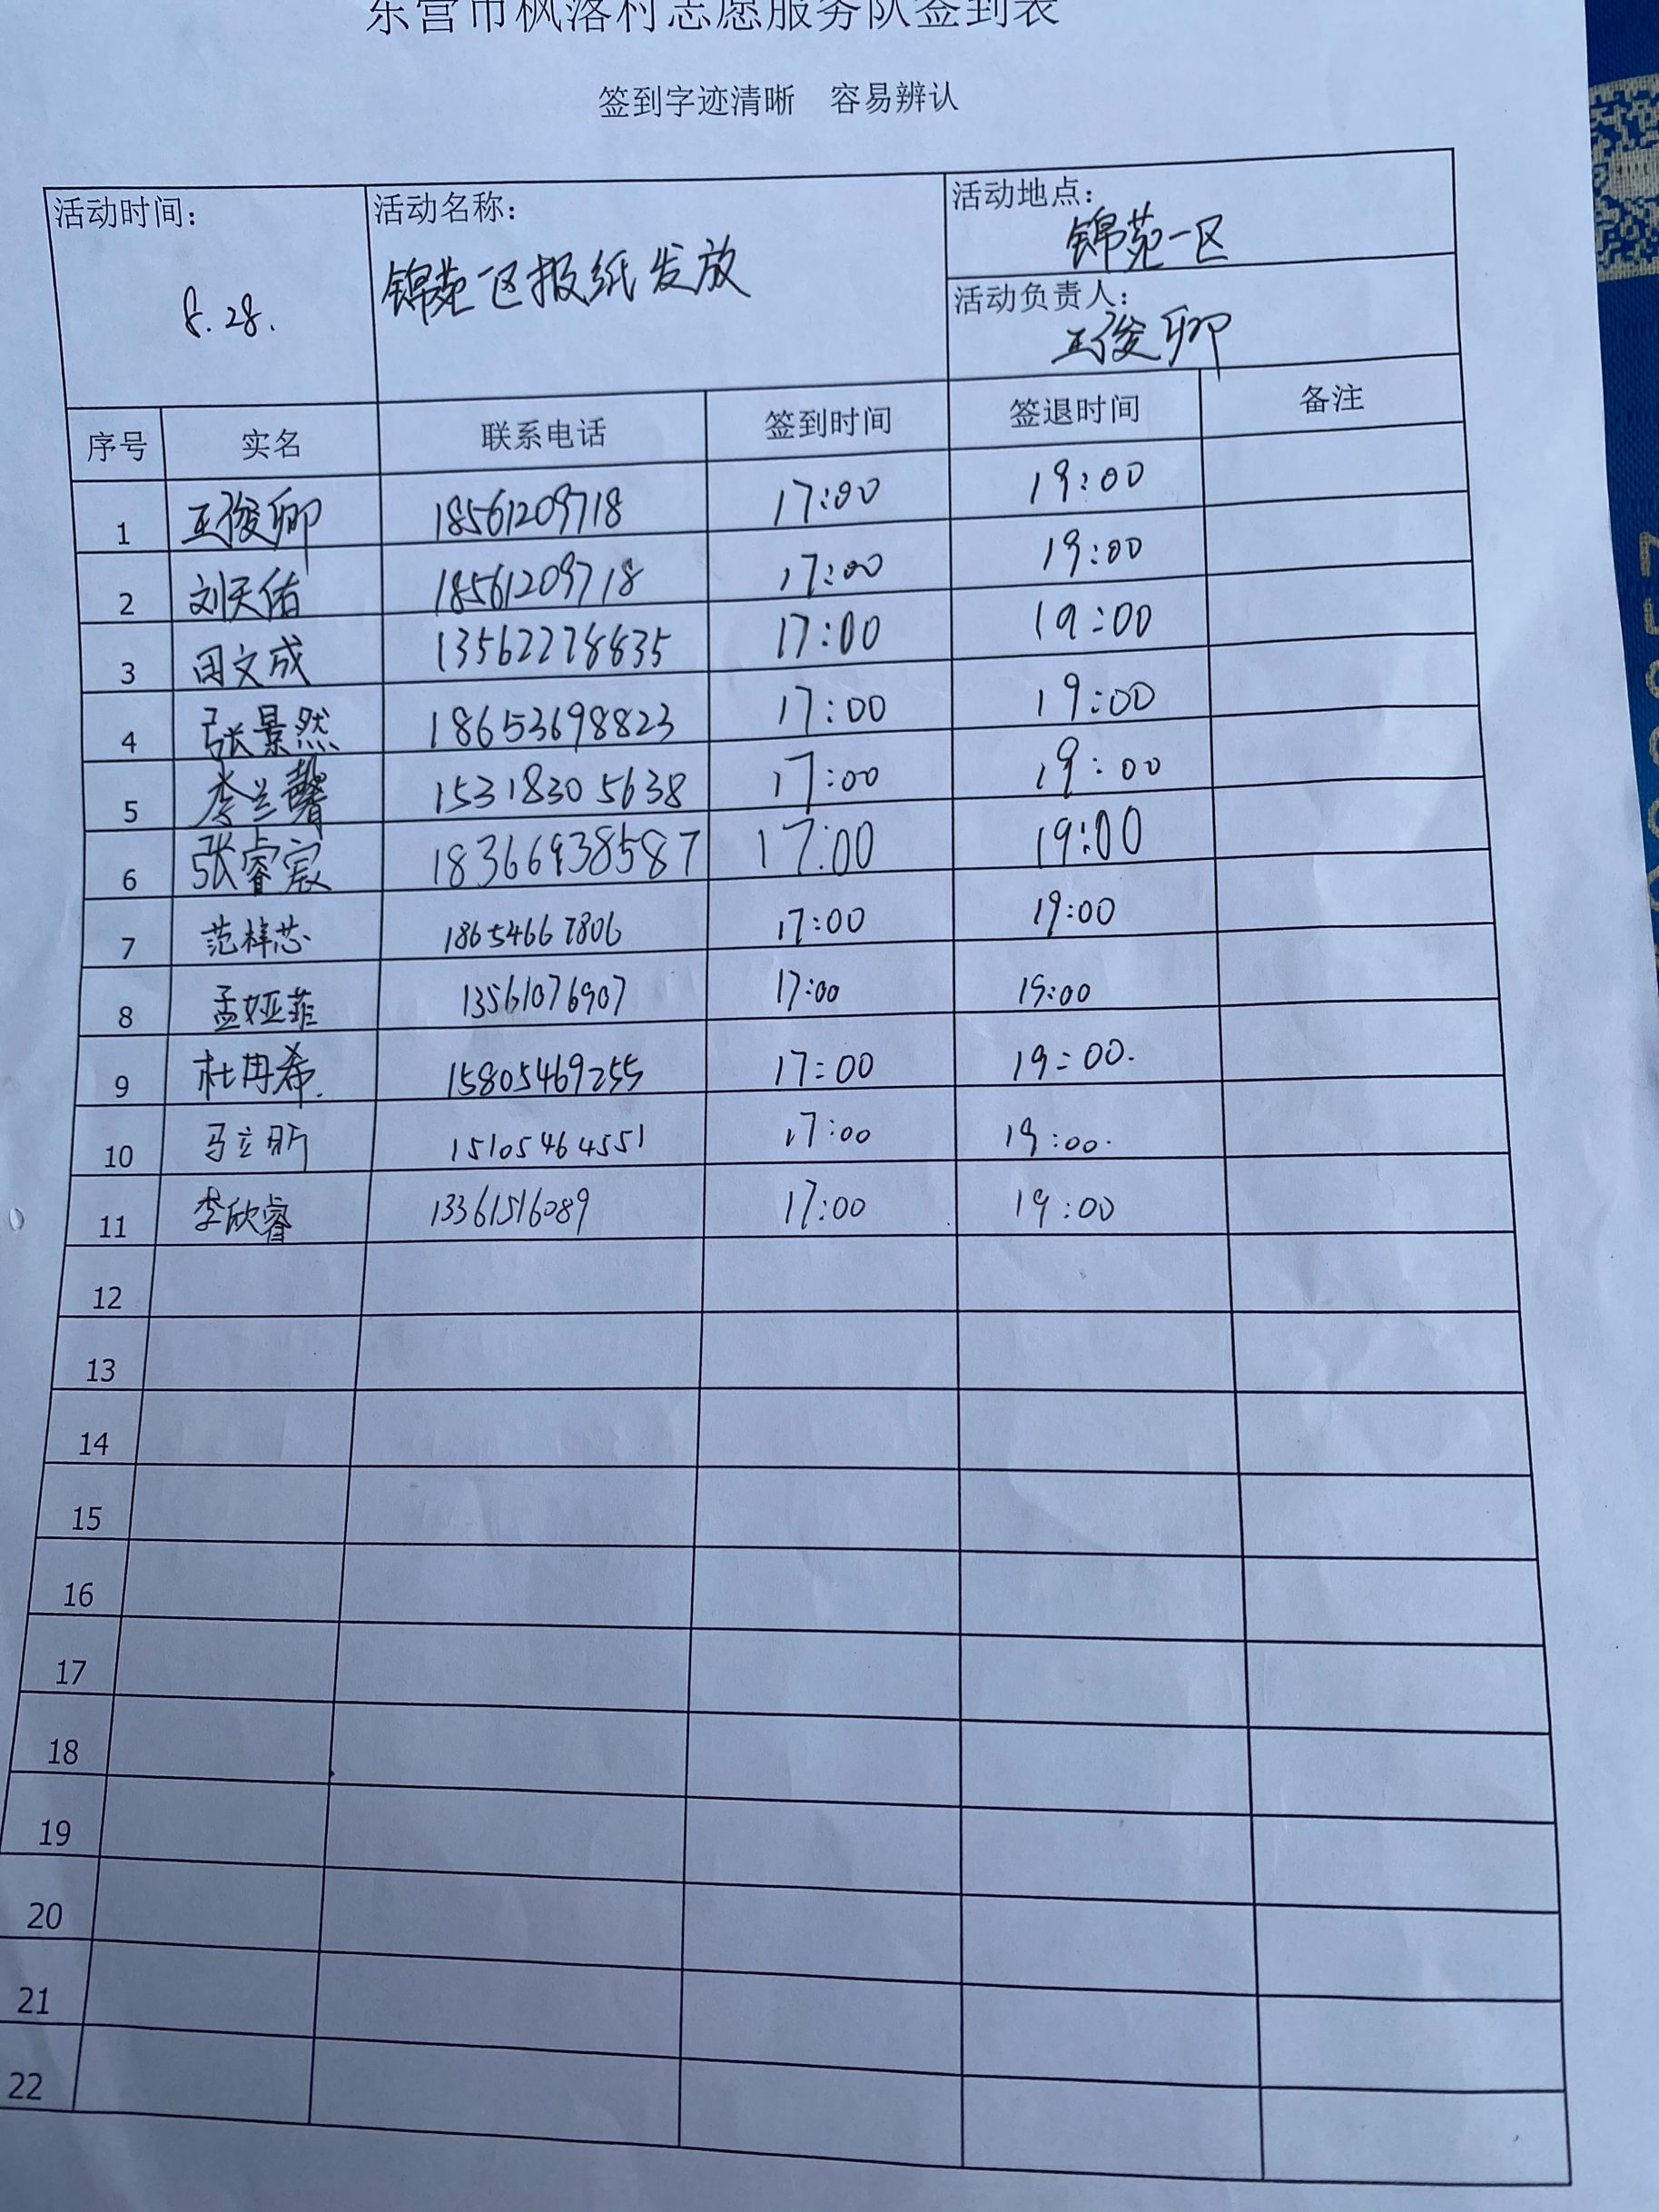 东营市枫落村志愿服务队签到表
签到字迹清晰 容易辨认
活动时间: 活动名称: 活动地点:
8.28. 锦苑一区报纸发放 锦苑一区
活动负责人:
王俊卿
序号 实名 联系电话 签到时间 签退时间 备注
1 王俊卿 18561209718 17:00 19:00
2 刘天佑 18561209718 17:00 19:00
3 田文成 13562278835 17:00 19:00
4 张景然 18653698823 17:00 19:00
5 李兰馨 15318305638 17:00 19:00
6 张睿宸 18366938587 17:00 19:00
7 范梓芯 18654667806 17:00 19:00
8 孟娅菲 13561076907 17:00 19:00
9 杜冉希. 15805469255 17:00 19:00.
10 马立昕 15105464551 17:00 19:00.
11 李欣睿 13361516089 17:00 19:00
12
13
14
15
16
17
18
19
20
21
22